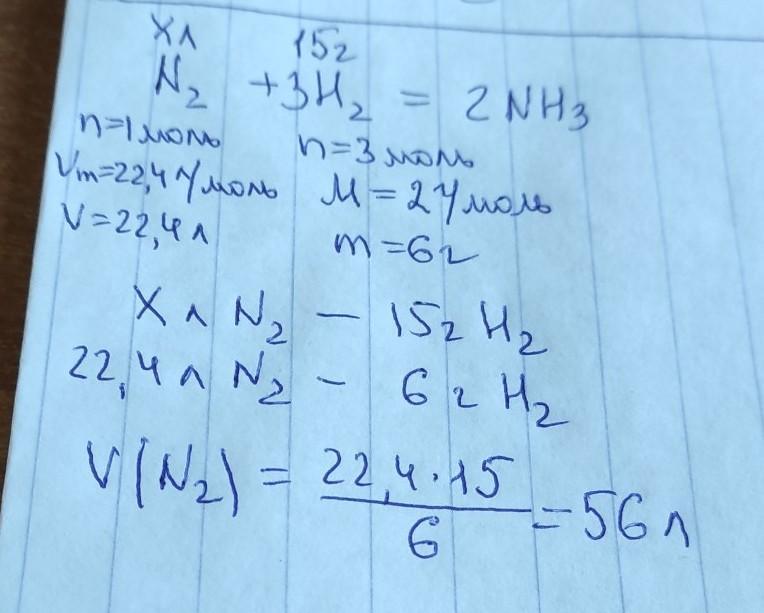 Xл 15г
N₂ + 3H₂ = 2NH₃
n=1моль n=3моль
Vm=22,4л/моль M=2г/моль
V=22,4л m=6г
X л N₂ — 15г H₂
22,4л N₂ - 6г H₂
V(N₂) = 22,4·15/6 = 56л